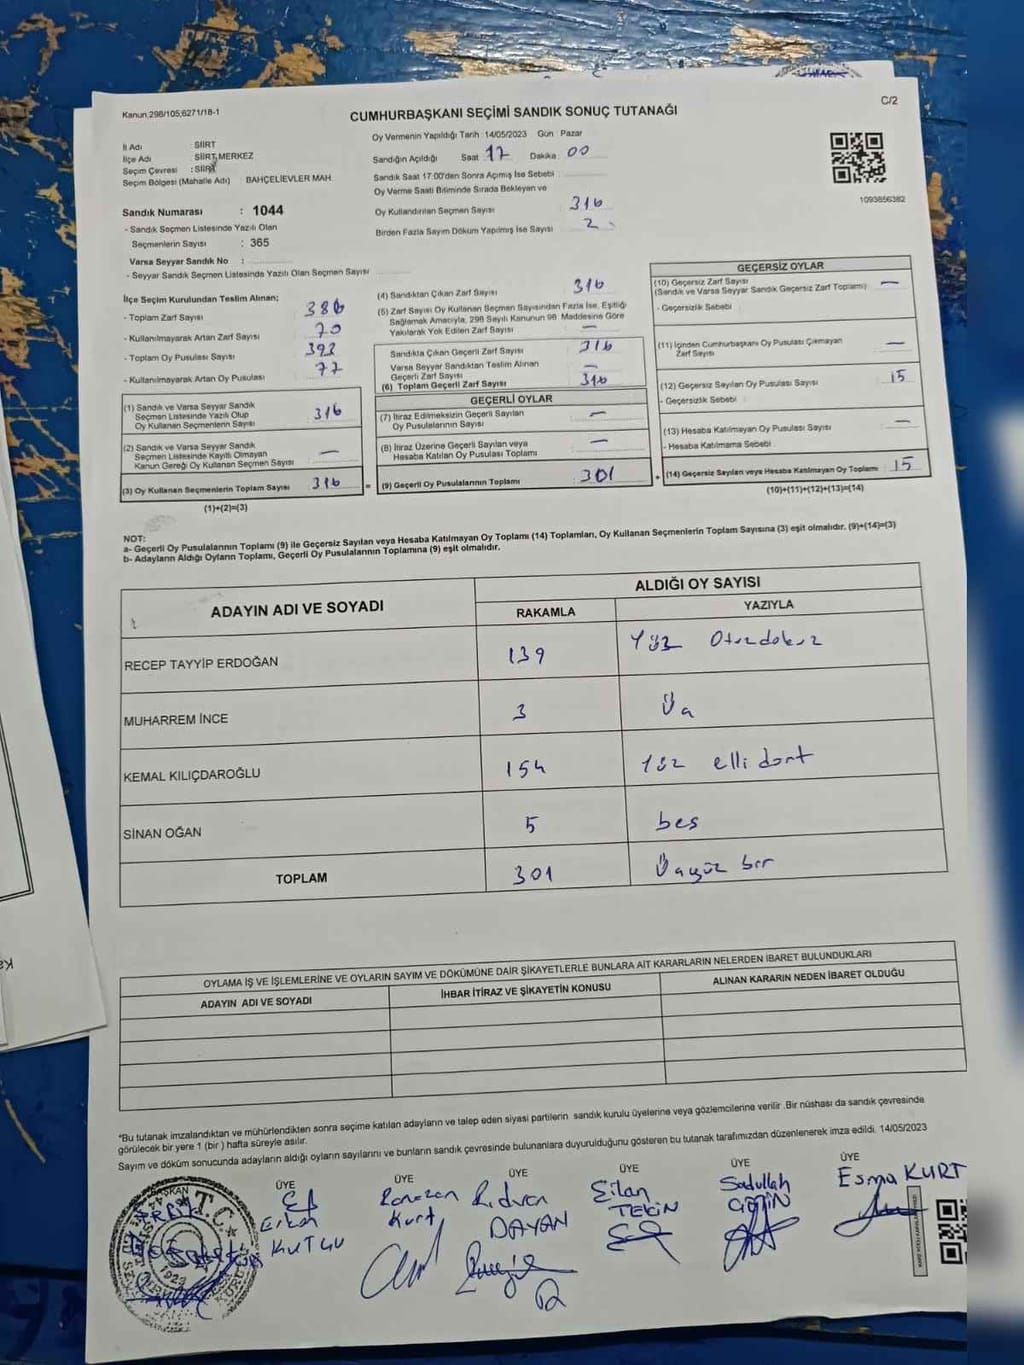 Kanun,298/105;6271/18-1
CUMHURBAŞKANI SEÇİMİ SANDIK SONUÇ TUTANAĞI
C/2
İl Adı SİİRT
İlçe Adı SİİRT,MERKEZ
Seçim Çevresi : SİİRT
Seçim Bölgesi (Mahalle Adı) BAHÇELİEVLER MAH.
Sandık Numarası : 1044
- Sandık Seçmen Listesinde Yazılı Olan
Seçmenlerin Sayısı : 365
Varsa Seyyar Sandık No :
- Seyyar Sandık Seçmen Listesinde Yazılı Olan Seçmen Sayısı
Oy Vermenin Yapıldığı Tarih :14/05/2023 Gün : Pazar
Sandığın Açıldığı Saat 17 Dakika 00
Sandık Saat 17:00'den Sonra Açımış İse Sebebi
Oy Verme Saati Bitiminde Sırada Bekleyen ve
Oy Kullandırılan Seçmen Sayısı 316
Birden Fazla Sayım Döküm Yapılmış İse Sayısı 2
1093856382
İlçe Seçim Kurulundan Teslim Alınan;
- Toplam Zarf Sayısı 386
- Kullanılmayarak Artan Zarf Sayısı 70
- Toplam Oy Pusulası Sayısı 393
- Kullanılmayarak Artan Oy Pusulası 77
(1) Sandık ve Varsa Seyyar Sandık
Seçmen Listesinde Yazılı Olup
Oy Kullanan Seçmenlerin Sayısı 316
(2) Sandık ve Varsa Seyyar Sandık
Seçmen Listesinde Kayıtlı Olmayan
Kanun Gereği Oy Kullanan Seçmen Sayısı —
(3) Oy Kullanan Seçmenlerin Toplam Sayısı 316 =
(1)+(2)=(3)
(4) Sandıktan Çıkan Zarf Sayısı 316
(5) Zarf Sayısı Oy Kullanan Seçmen Sayısından Fazla İse, Eşitliği
Sağlamak Amacıyla, 298 Sayılı Kanunun 98. Maddesine Göre
Yakılarak Yok Edilen Zarf Sayısı —
Sandıkta Çıkan Geçerli Zarf Sayısı 316
Varsa Seyyar Sandıktan Teslim Alınan
Geçerli Zarf Sayısı —
(6) Toplam Geçerli Zarf Sayısı 316
GEÇERLİ OYLAR
(7) İtiraz Edilmeksizin Geçerli Sayılan
Oy Pusulalarının Sayısı —
(8) İtiraz Üzerine Geçerli Sayılan veya
Hesaba Katılan Oy Pusulası Toplamı —
(9) Geçerli Oy Pusulalarının Toplamı 301 +
GEÇERSİZ OYLAR
(10) Geçersiz Zarf Sayısı —
(Sandık ve Varsa Seyyar Sandık Geçersiz Zarf Toplamı)
- Geçersizlik Sebebi
(11) İçinden Cumhurbaşkanı Oy Pusulası Çıkmayan
Zarf Sayısı —
(12) Geçersiz Sayılan Oy Pusulası Sayısı 15
- Geçersizlik Sebebi
(13) Hesaba Katılmayan Oy Pusulası Sayısı —
- Hesaba Katılmama Sebebi
(14) Geçersiz Sayılan veya Hesaba Katılmayan Oy Toplamı 15
(10)+(11)+(12)+(13)=(14)
NOT:
a- Geçerli Oy Pusulalarının Toplamı (9) ile Geçersiz Sayılan veya Hesaba Katılmayan Oy Toplamı (14) Toplamları, Oy Kullanan Seçmenlerin Toplam Sayısına (3) eşit olmalıdır. (9)+(14)=(3)
b- Adayların Aldığı Oyların Toplamı, Geçerli Oy Pusulalarının Toplamına (9) eşit olmalıdır.
ADAYIN ADI VE SOYADI
ALDIĞI OY SAYISI
RAKAMLA YAZIYLA
RECEP TAYYİP ERDOĞAN 139 Yüz Otuzdokuz
MUHARREM İNCE 3 Üç
KEMAL KILIÇDAROĞLU 154 Yüz elli dört
SİNAN OĞAN 5 beş
TOPLAM 301 Üçyüz bir
OYLAMA İŞ VE İŞLEMLERİNE VE OYLARIN SAYIM VE DÖKÜMÜNE DAİR ŞİKAYETLERLE BUNLARA AİT KARARLARIN NELERDEN İBARET BULUNDUKLARI
ADAYIN ADI VE SOYADI İHBAR İTİRAZ VE ŞİKAYETİN KONUSU ALINAN KARARIN NEDEN İBARET OLDUĞU
*Bu tutanak imzalandıktan ve mühürlendikten sonra seçime katılan adayların ve talep eden siyasi partilerin sandık kurulu üyelerine veya gözlemcilerine verilir .Bir nüshası da sandık çevresinde
görülecek bir yere 1 (bir ) hafta süreyle asılır.
Sayım ve döküm sonucunda adayların aldığı oyların sayılarını ve bunların sandık çevresinde bulunanlara duyurulduğunu gösteren bu tutanak tarafımızdan düzenlenerek imza edildi. 14/05/2023
BAŞKAN ÜYE ÜYE ÜYE ÜYE ÜYE ÜYE
Erkan KUTLU
Ramazan Kurt
Rıdvan DAYAN
Eilan TEKİN
Sadullah
Esma KURT
T.C.